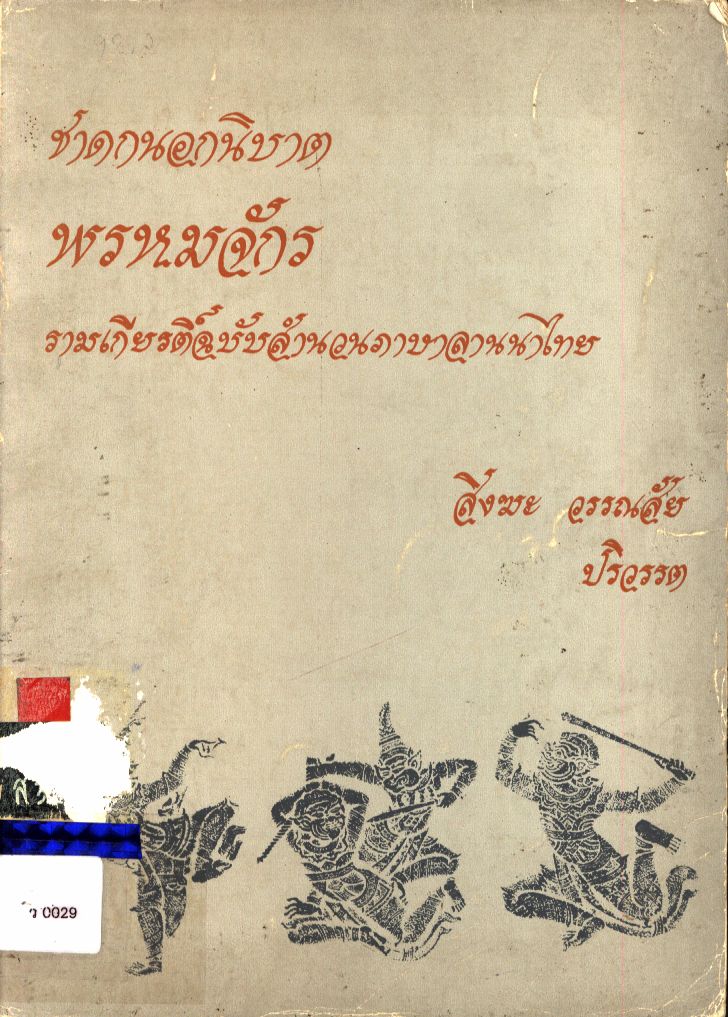 ชาดกนอกนิบาต
พรหมจักร
รามเกียรติ์ฉบับสำนวนภาษาลานนาไทย
สิงฆะ วรรณสัย
ปริวรรต
ส
ว 0029